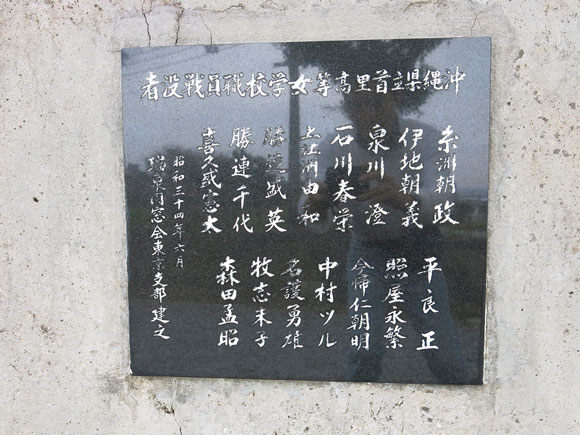 沖縄県立首里高等女学校職員戦没者
糸洲朝政
伊地朝義
泉川 澄
石川春栄
上江洲由和
盛英
勝連千代
喜久盛憲太
平良 正
照屋永繁
今帰仁朝明
中村ツル
名護勇雄
牧志末子
森田孟昭
昭和三十四年六月
瑞泉同窓会東京支部 建之